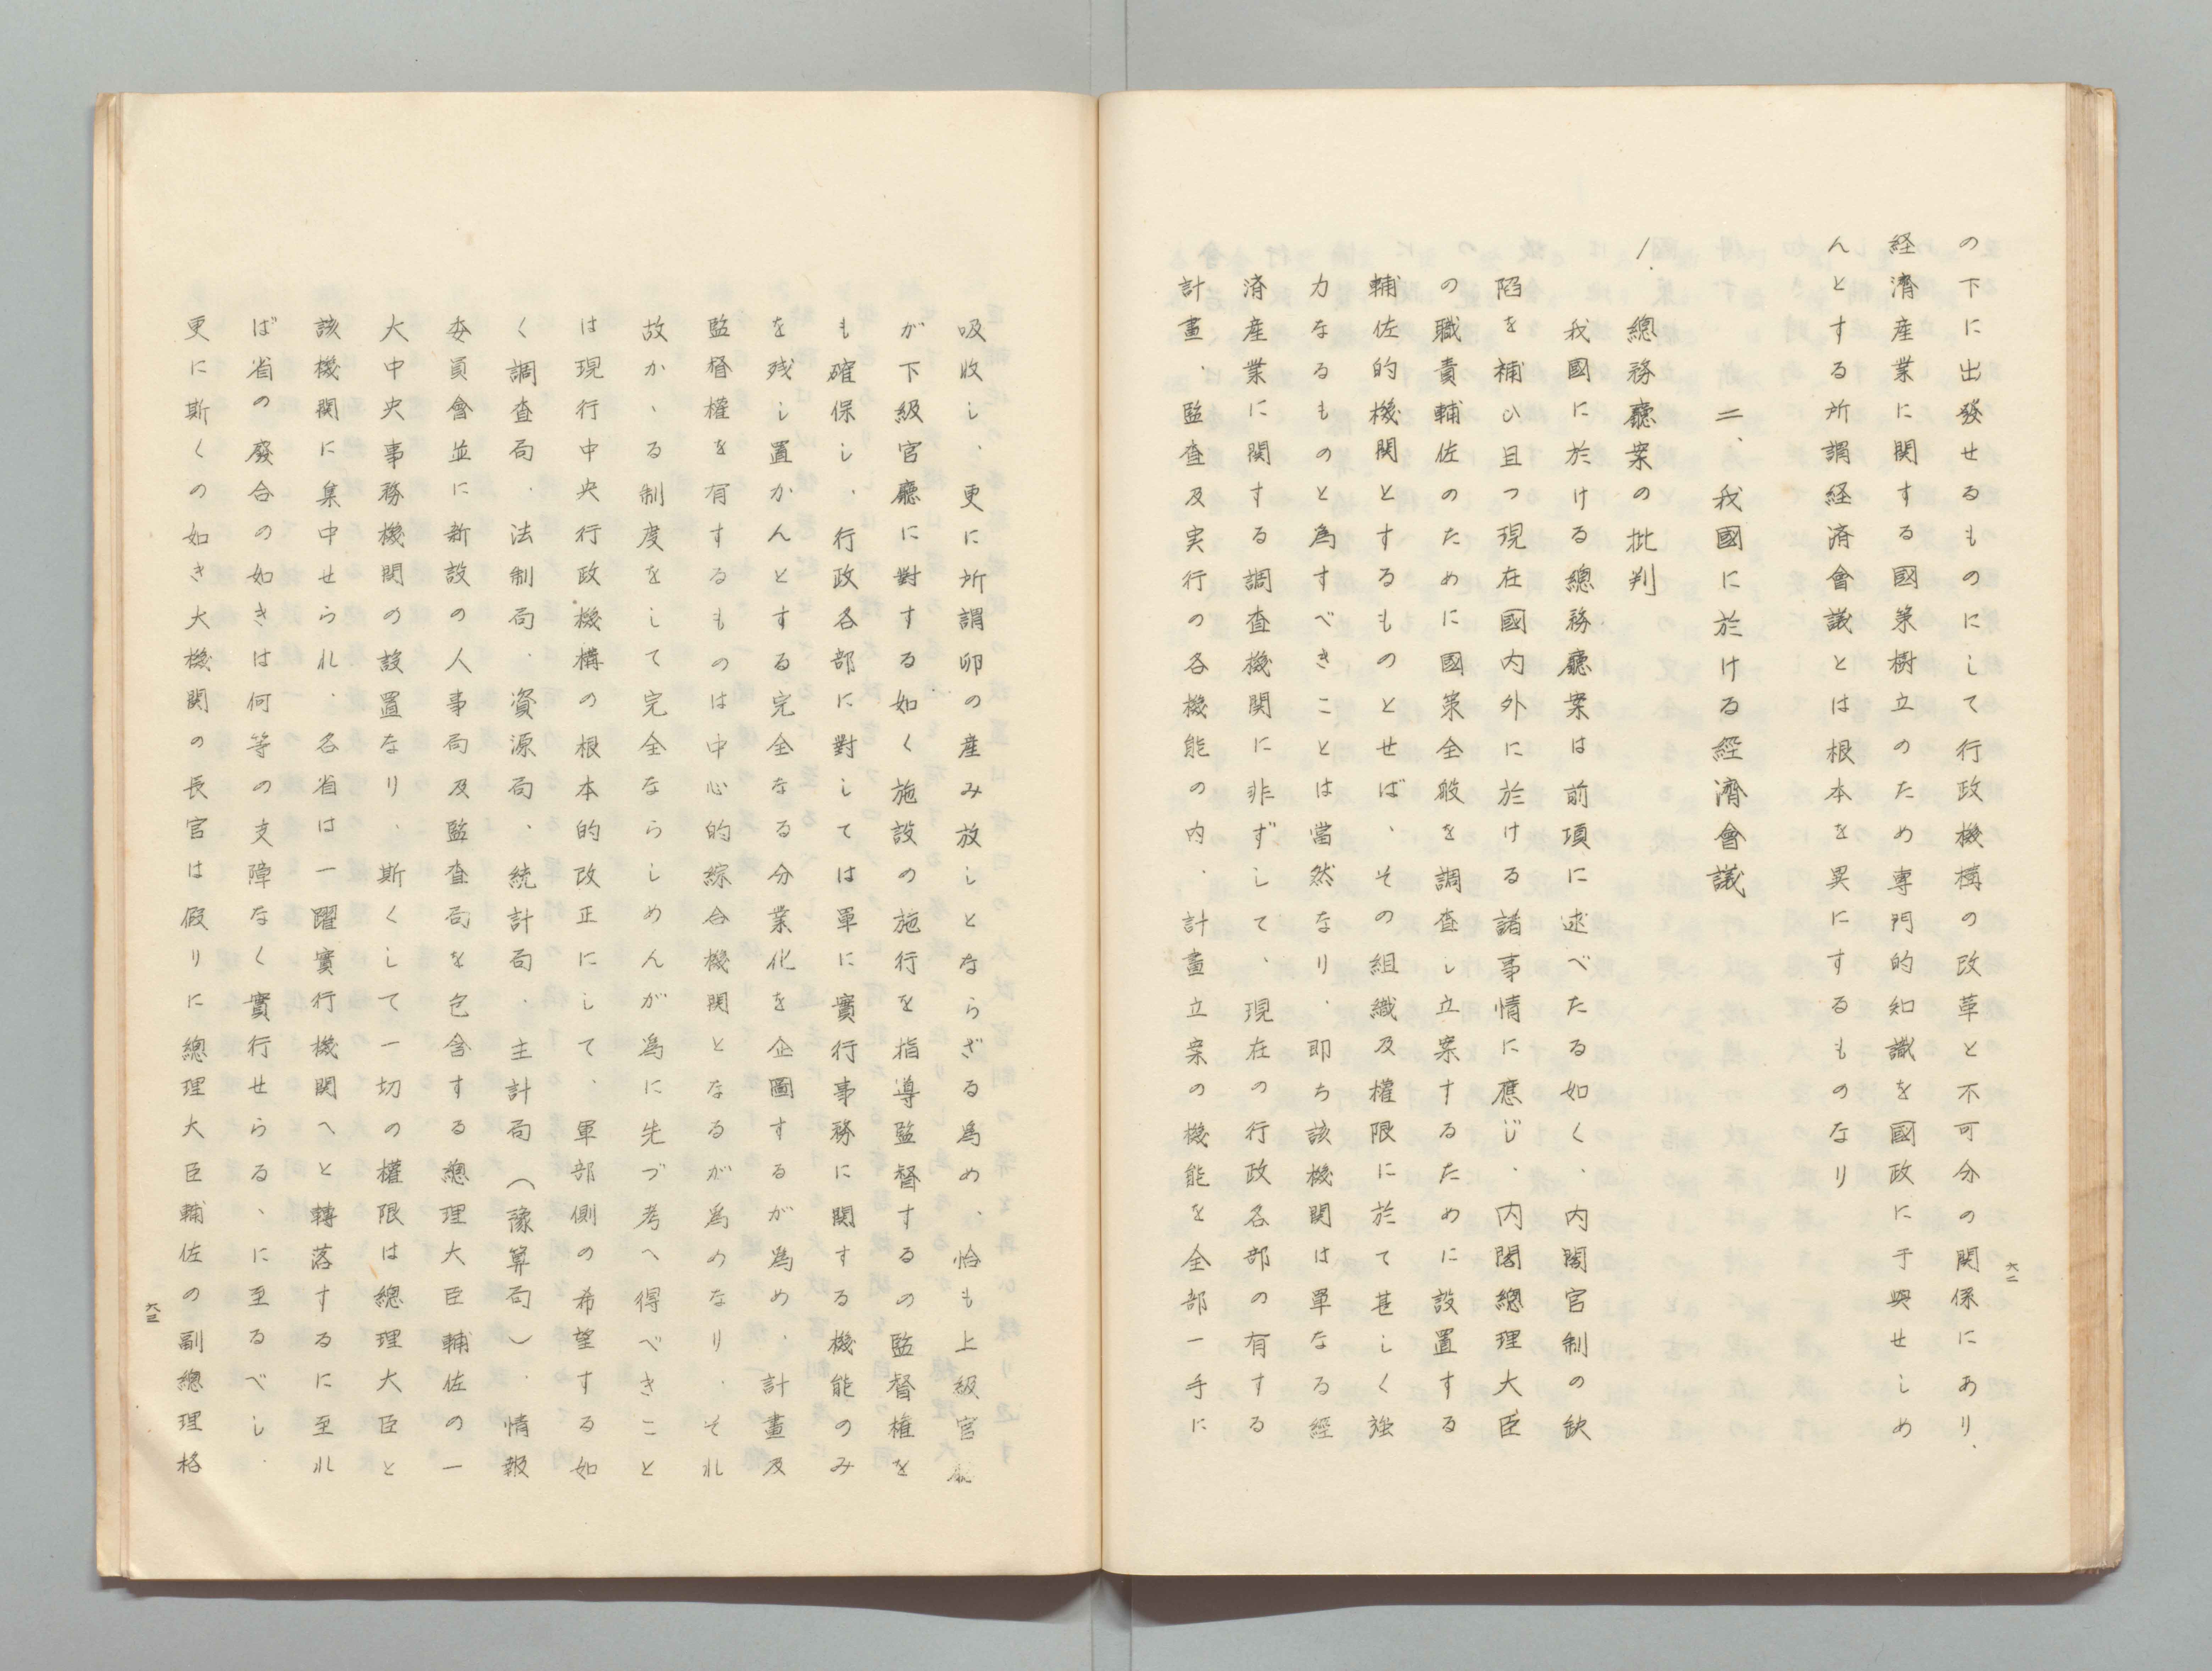 の下に出發せるものにして行政機構の改革と不可分の関係にあり、
経濟産業に関する國策樹立のため専門的知識を國政に干與せしめ
んとする所謂経済會議とは根本を異にするものなり
二、我國に於ける經濟會議
1. 總務廳案の批判
我國に於ける總務廳案は前項に述べたる如く、内閣官制の缺
陥を補ひ且つ現在國内外に於ける諸事情に應じ、内閣總理大臣
の職責輔佐のために國策全般を調査し立案するために設置する
輔佐的機関とするものとせば、その組織及權限に於て甚しく強
力なるものと為すべきことは當然なり、即ち該機関は單なる經
済産業に関する調査機関に非ずして、現在の行政各部の有する
計畫、監査及実行の各機能の内、計畫立案の機能を全部一手に
六二
吸收し、更に所謂卵の産み放しとならざる為め、恰も上級官廳
が下級官廳に對する如く施設の施行を指導監督するの監督権を
も確保し、行政各部に對しては單に實行事務に関する機能のみ
を残し置かんとする完全なる分業化を企圖するが為め、計畫及
監督權を有するものは中心的綜合機関となるが為めなり、それ
故かゝる制度をして完全ならしめんが為に先づ考へ得べきこと
は現行中央行政機構の根本的改正にして、軍部側の希望する如
く調査局、法制局、資源局、統計局、主計局（豫算局）、情報
委員會並に新設の人事局及監査局を包含する總理大臣輔佐の一
大中央事務機関の設置なり、斯くして一切の權限は總理大臣と
該機関に集中せられ、各省は一躍實行機関へと轉落するに至れ
ば省の廢合の如きは何等の支障なく實行せらるゝに至るべし、
更に斯くの如き大機関の長官は假りに總理大臣輔佐の副總理格
六三